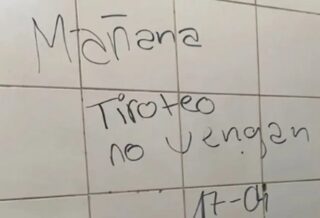 Mañana
Tiroteo
no vengan